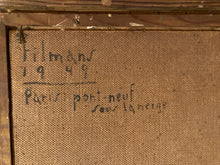 Tilmans
1949
Paris: pont-neuf
sous la neige